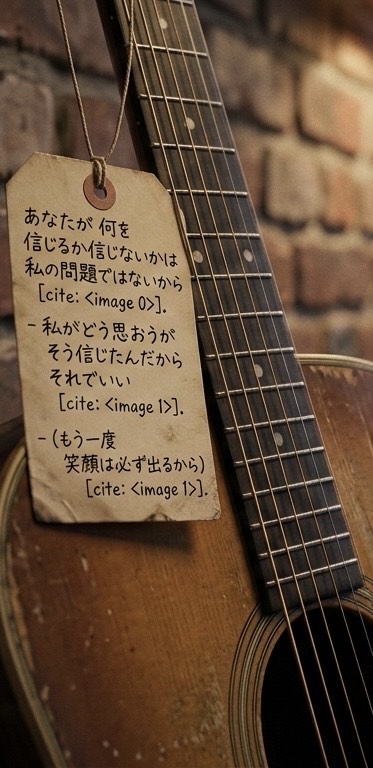 あなたが 何を
信じるか信じないかは
私の問題ではないから
[cite: <image 0>].
- 私がどう思おうが
そう信じたんだから
それでいい
[cite: <image 1>].
- (もう一度
笑顔は必ず出るから)
[cite: <image 1>].